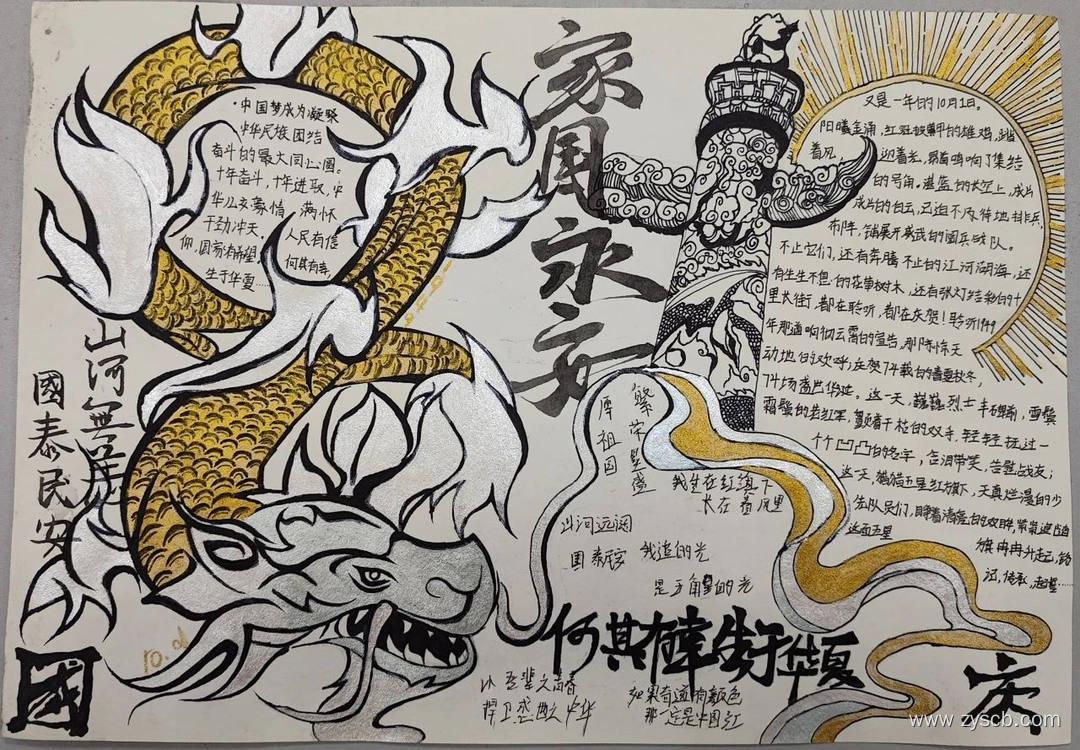 家国永安
·中国梦成为凝聚
中华民族团结
奋斗的最大同心圆。
十年奋斗,十年进取,中
华儿女豪情满怀
干劲冲天,人民有信
仰,国家有希望
何其有幸,
生于华夏……
山河無恙
國泰民安
國
10.01
又是一年的10月1日。
阳曦金涌,红冠披
的雄鸡,踏
着风
迎着光,
鸣响了集结
的号角。湛蓝的长空上,成片
成片的白云,已迫不及待地排兵
布阵,铺展开英武的阅兵战队。
不止它们,还有奔腾不止的江河湖海,还
有生生不息的花草树木,还有张灯结彩的十
里长街,都在聆听,都在庆贺!聆听1949
年那道响彻云霄的宣告,那阵惊天
动地的欢呼;庆贺74载的
秋冬,
74场盛世华诞。这一天,巍巍烈士丰碑前,雪鬓
霜鬟的老红军,颤着干枯的双手,轻轻抚过一
个个凹凸的名字,含泪带笑,告慰战友;
这一天,猎猎五星红旗下,天真烂漫的少
先队员们,睁着清澈的双眸,紧
这面五星
旗冉冉升起,铭
记,传承,
愿祖国
繁荣昌盛
我生在红旗下
长在春风里
山河远阔
国泰民安
我追的光
是五角星的光
何其有幸生于华夏
以吾辈之青春
捍卫盛世之中华
如果奇迹有颜色
那一定是中国红
庆
www.zyscb.com